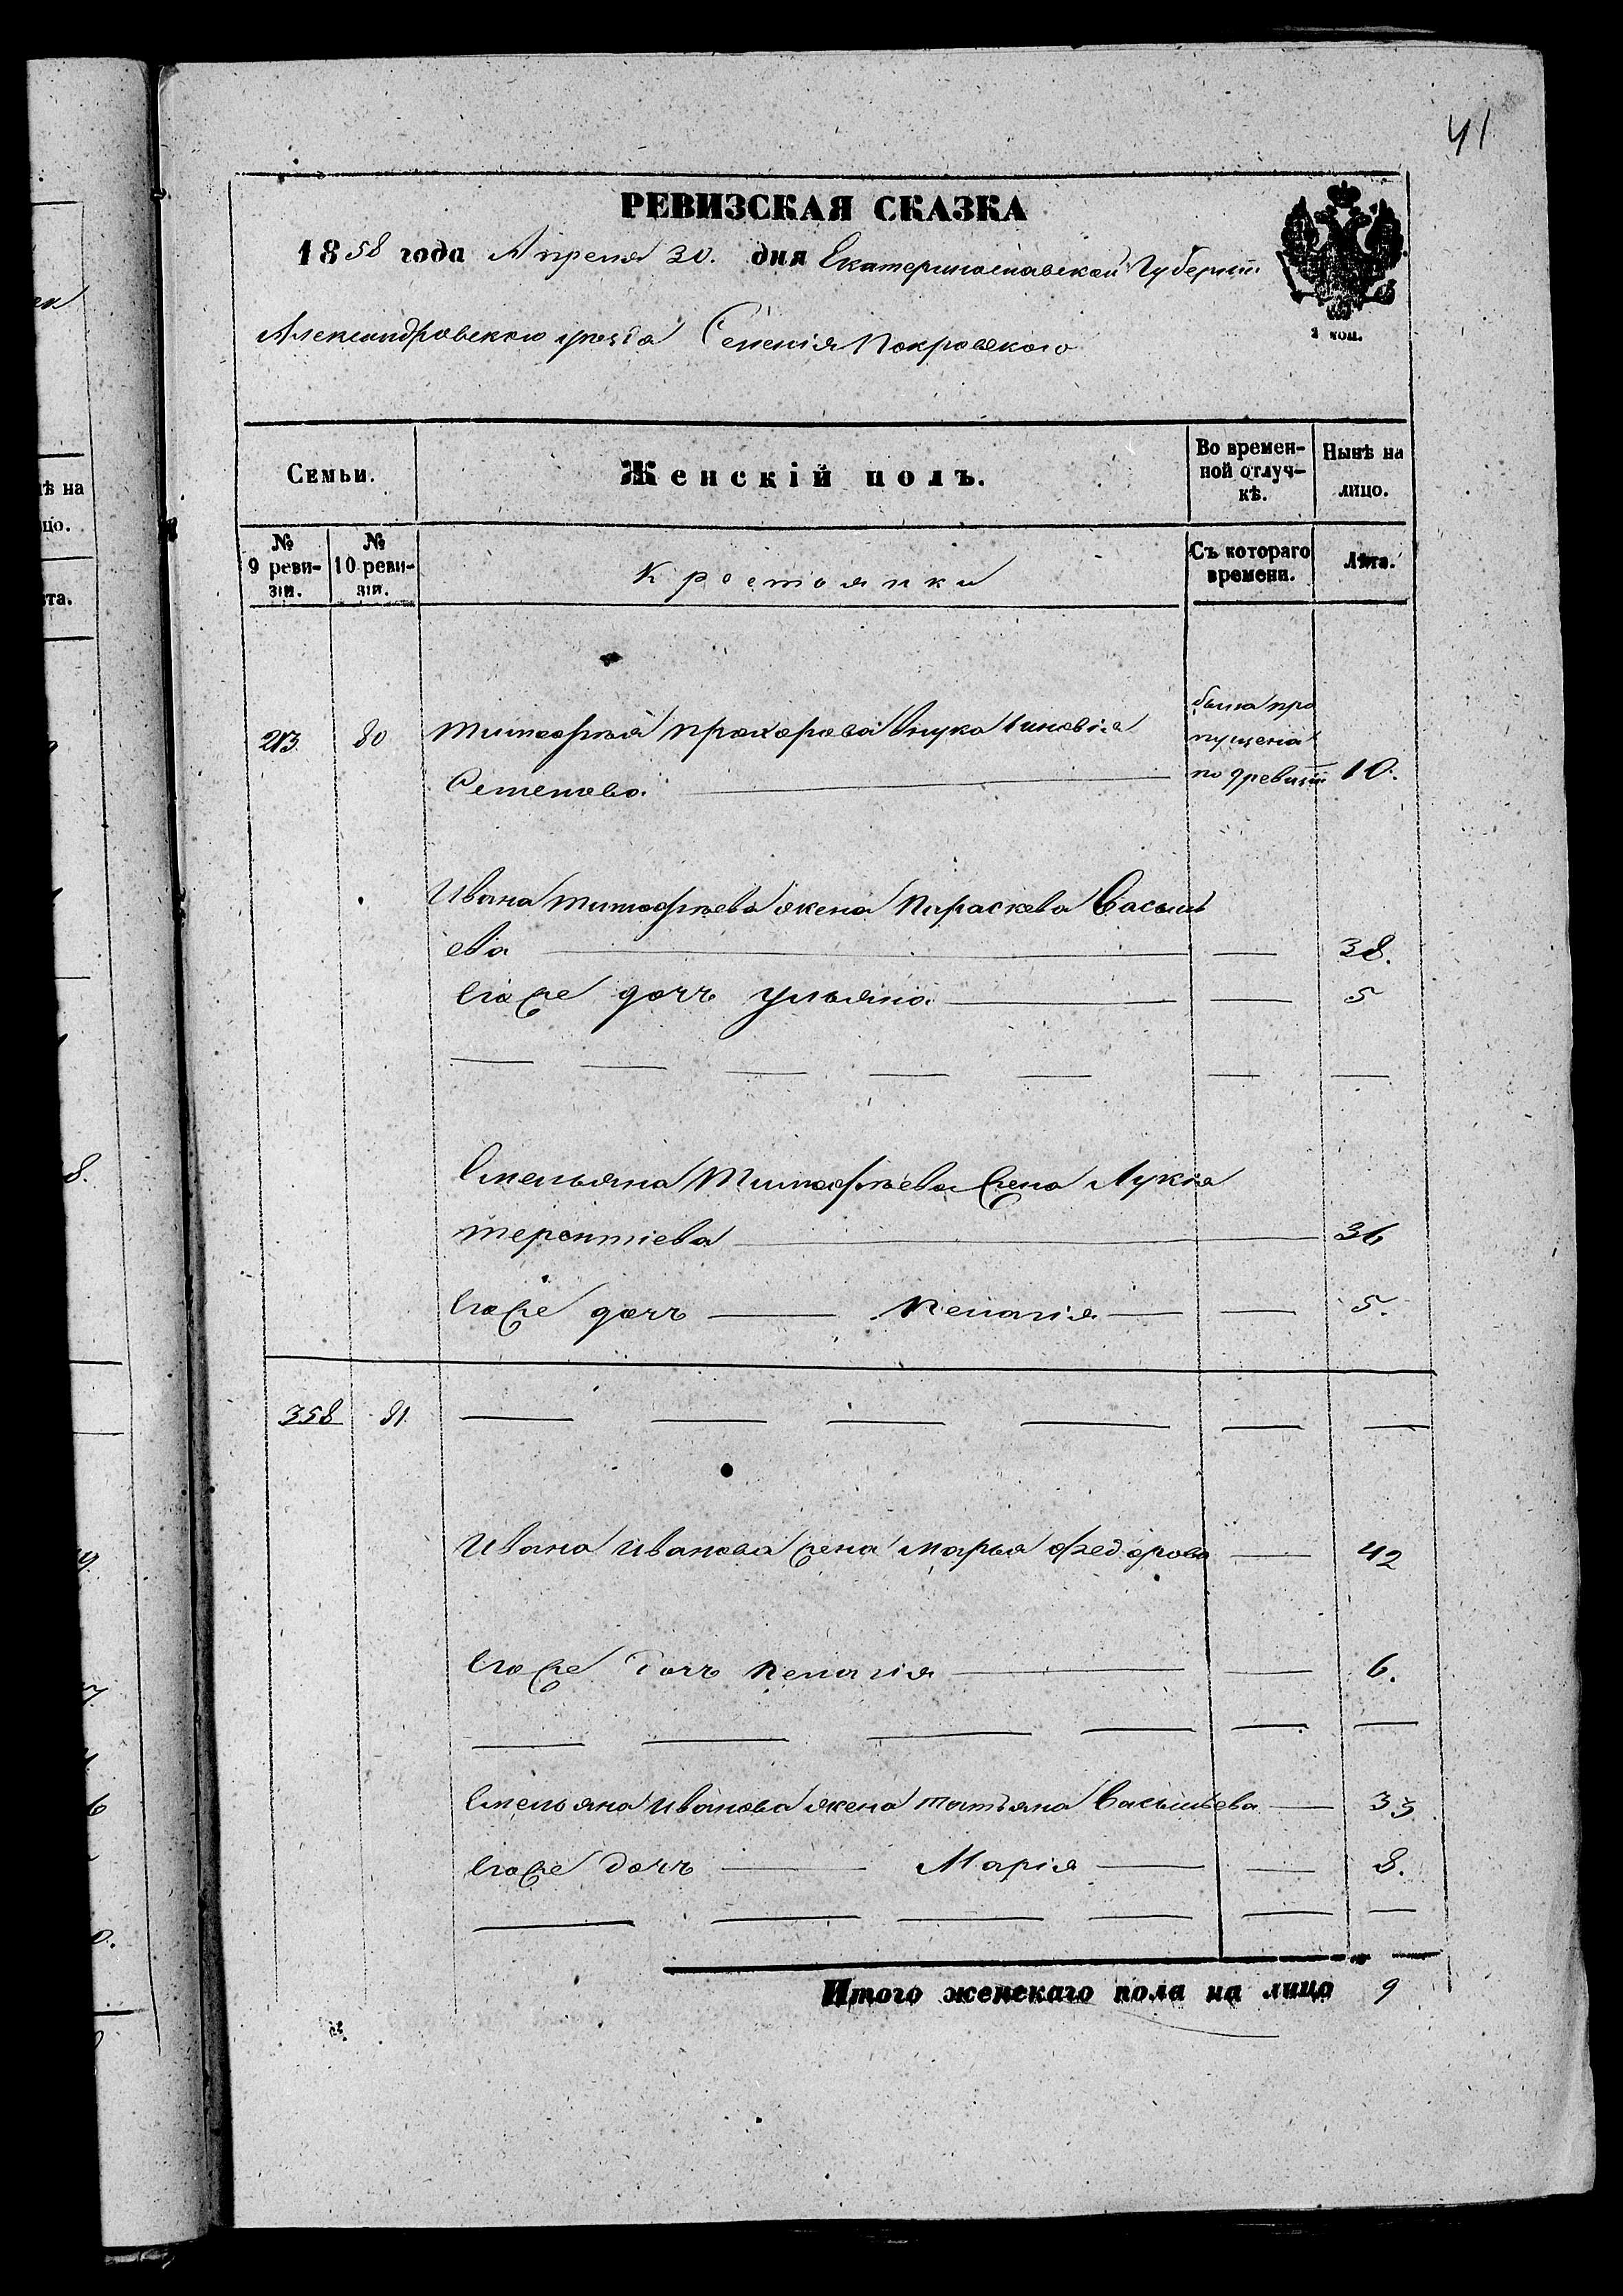 41
РЕВИЗСКАЯ СКАЗКА
1858 года Апреля 30. дня Екатеринославской Губерніи
Александровского уезда Селенія Покровского
2 коп.
Семьи.
Женскій полъ.
Во времен-
ной отлуч-
кѣ.
Нынѣ на
лицо.
№
9 реви-
зіи.
№
10 реви-
зіи.
Крестьянки
Съ котораго
времени.
Лѣта.
213 80 Тимофѣя Прохорова внука Зиновія
Семенова
была про
пущена
по 9 ревизіи 10.
Ивана Тимофѣева жена Параскева Василь
ева 38.
Егоже дочь Ульяна 5
Емельяна Тимофѣева жена Лукія
Терентіева 36
Егоже дочь Пелагія 5.
358 81.
Ивана Иванова жена Марья Федорова 42
Егоже дочь Пелагія 6.
Емельяна Иванова жена Татьяна Васильева 35
Егоже дочь Марія 8.
Итого женскаго пола на лицо 9
ѣ на
цо.
та.